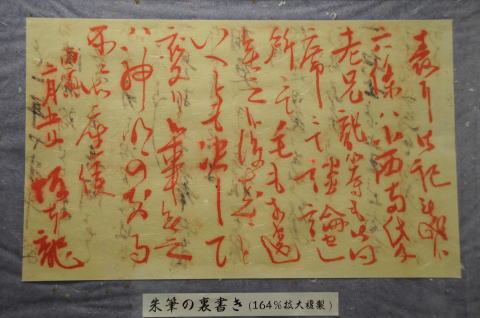 表に御記被成候
六條ハ小西両氏及
老兄龍等も御同
席ニて談論セし
所ニて毛も相違
無之候後来と
いへとも決して
変り候事無之
ハ神明の知る
所ニ御座候
丙寅
二月五日 坂本龍
朱筆の裏書き(164%拡大複製)